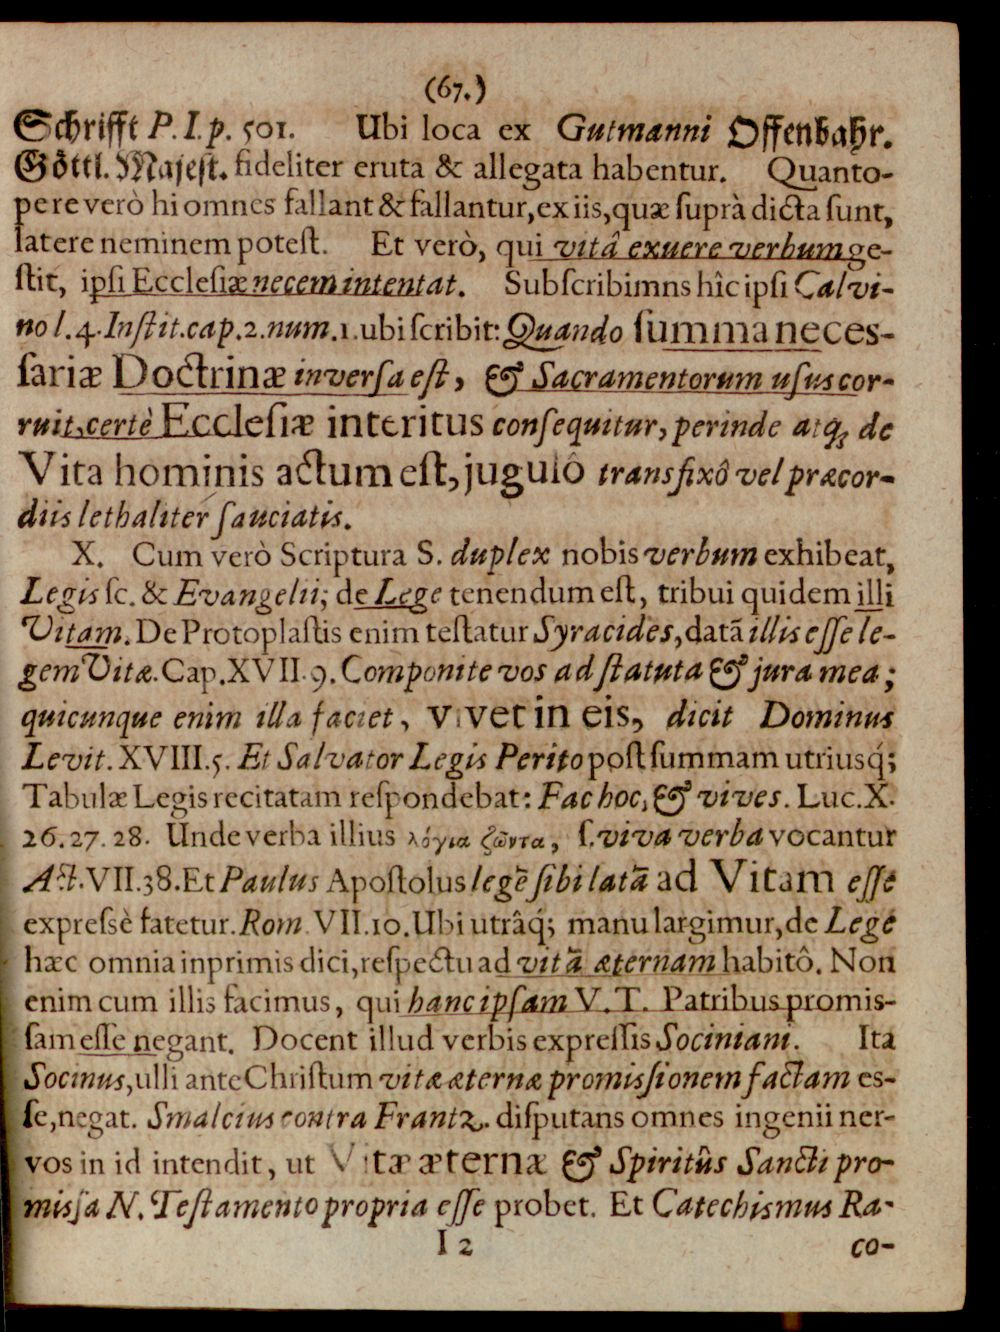 (67.)
Schrifft P. I. p. 501. Ubi loca ex Gutmanni Offenbahr.
Göttl. Majest. fideliter eruta & allegata habentur. Quanto-
pere verò hi omnes fallant & fallantur, ex iis, quæ ſuprà dicta ſunt,
latere neminem poteſt. Et verò, qui vitâ exuere verbum ge-
ſtit, ipſi Eccleſiæ necem intentat. Subſcribimns hîc ipſi Calvi-
no l. 4. Inſtit. cap. 2. num. 1. ubi ſcribit: Quando ſumma neces-
ſariæ Doctrinæ inverſa eſt, & Sacramentorum uſus cor-
ruit, certè Eccleſiæ interitus conſequitur, perinde atq; de
Vita hominis actum eſt, jugulô transfixô vel præcor-
diis lethaliter ſauciatis.
X. Cum verò Scriptura S. duplex nobis verbum exhibeat,
Legis ſc. & Evangelii; de Lege tenendum eſt, tribui quidem illi
Vitam. De Protoplaſtis enim teſtatur Syracides, datã illis eſſe le-
gem Vitæ. Cap. XVII. 9. Componite vos ad ſtatuta & jura mea;
quicunque enim illa faciet, vivet in eis, dicit Dominus
Levit. XVIII. 5. Et Salvator Legis Perito poſt ſummam utriusq́;
Tabulæ Legis recitatam reſpondebat: Fac hoc, & vives. Luc. X.
26. 27. 28. Unde verba illius λόγια ζῶντα, ſ. viva verba vocantur
Act. VII. 38. Et Paulus Apoſtolus legẽ ſibi latã ad Vitam eſſe
expreſsè fatetur. Rom. VII. 10. Ubi utrâq́; manu largimur, de Lege
hæc omnia inprimis dici, reſpectu ad vitã æternam habitô. Non
enim cum illis facimus, qui hanc ipſam V. T. Patribus promis-
ſam eſſe negant. Docent illud verbis expreſſis Sociniani. Ita
Socinus, ulli ante Chriſtum vitæ æternæ promiſſionem factam es-
ſe, negat. Smalcius contra Frantz. diſputans omnes ingenii ner-
vos in id intendit, ut Vitæ æternæ & Spiritûs Sancti pro-
miſſa N. Teſtamento propria eſſe probet. Et Catechismus Ra-
I 2 co-